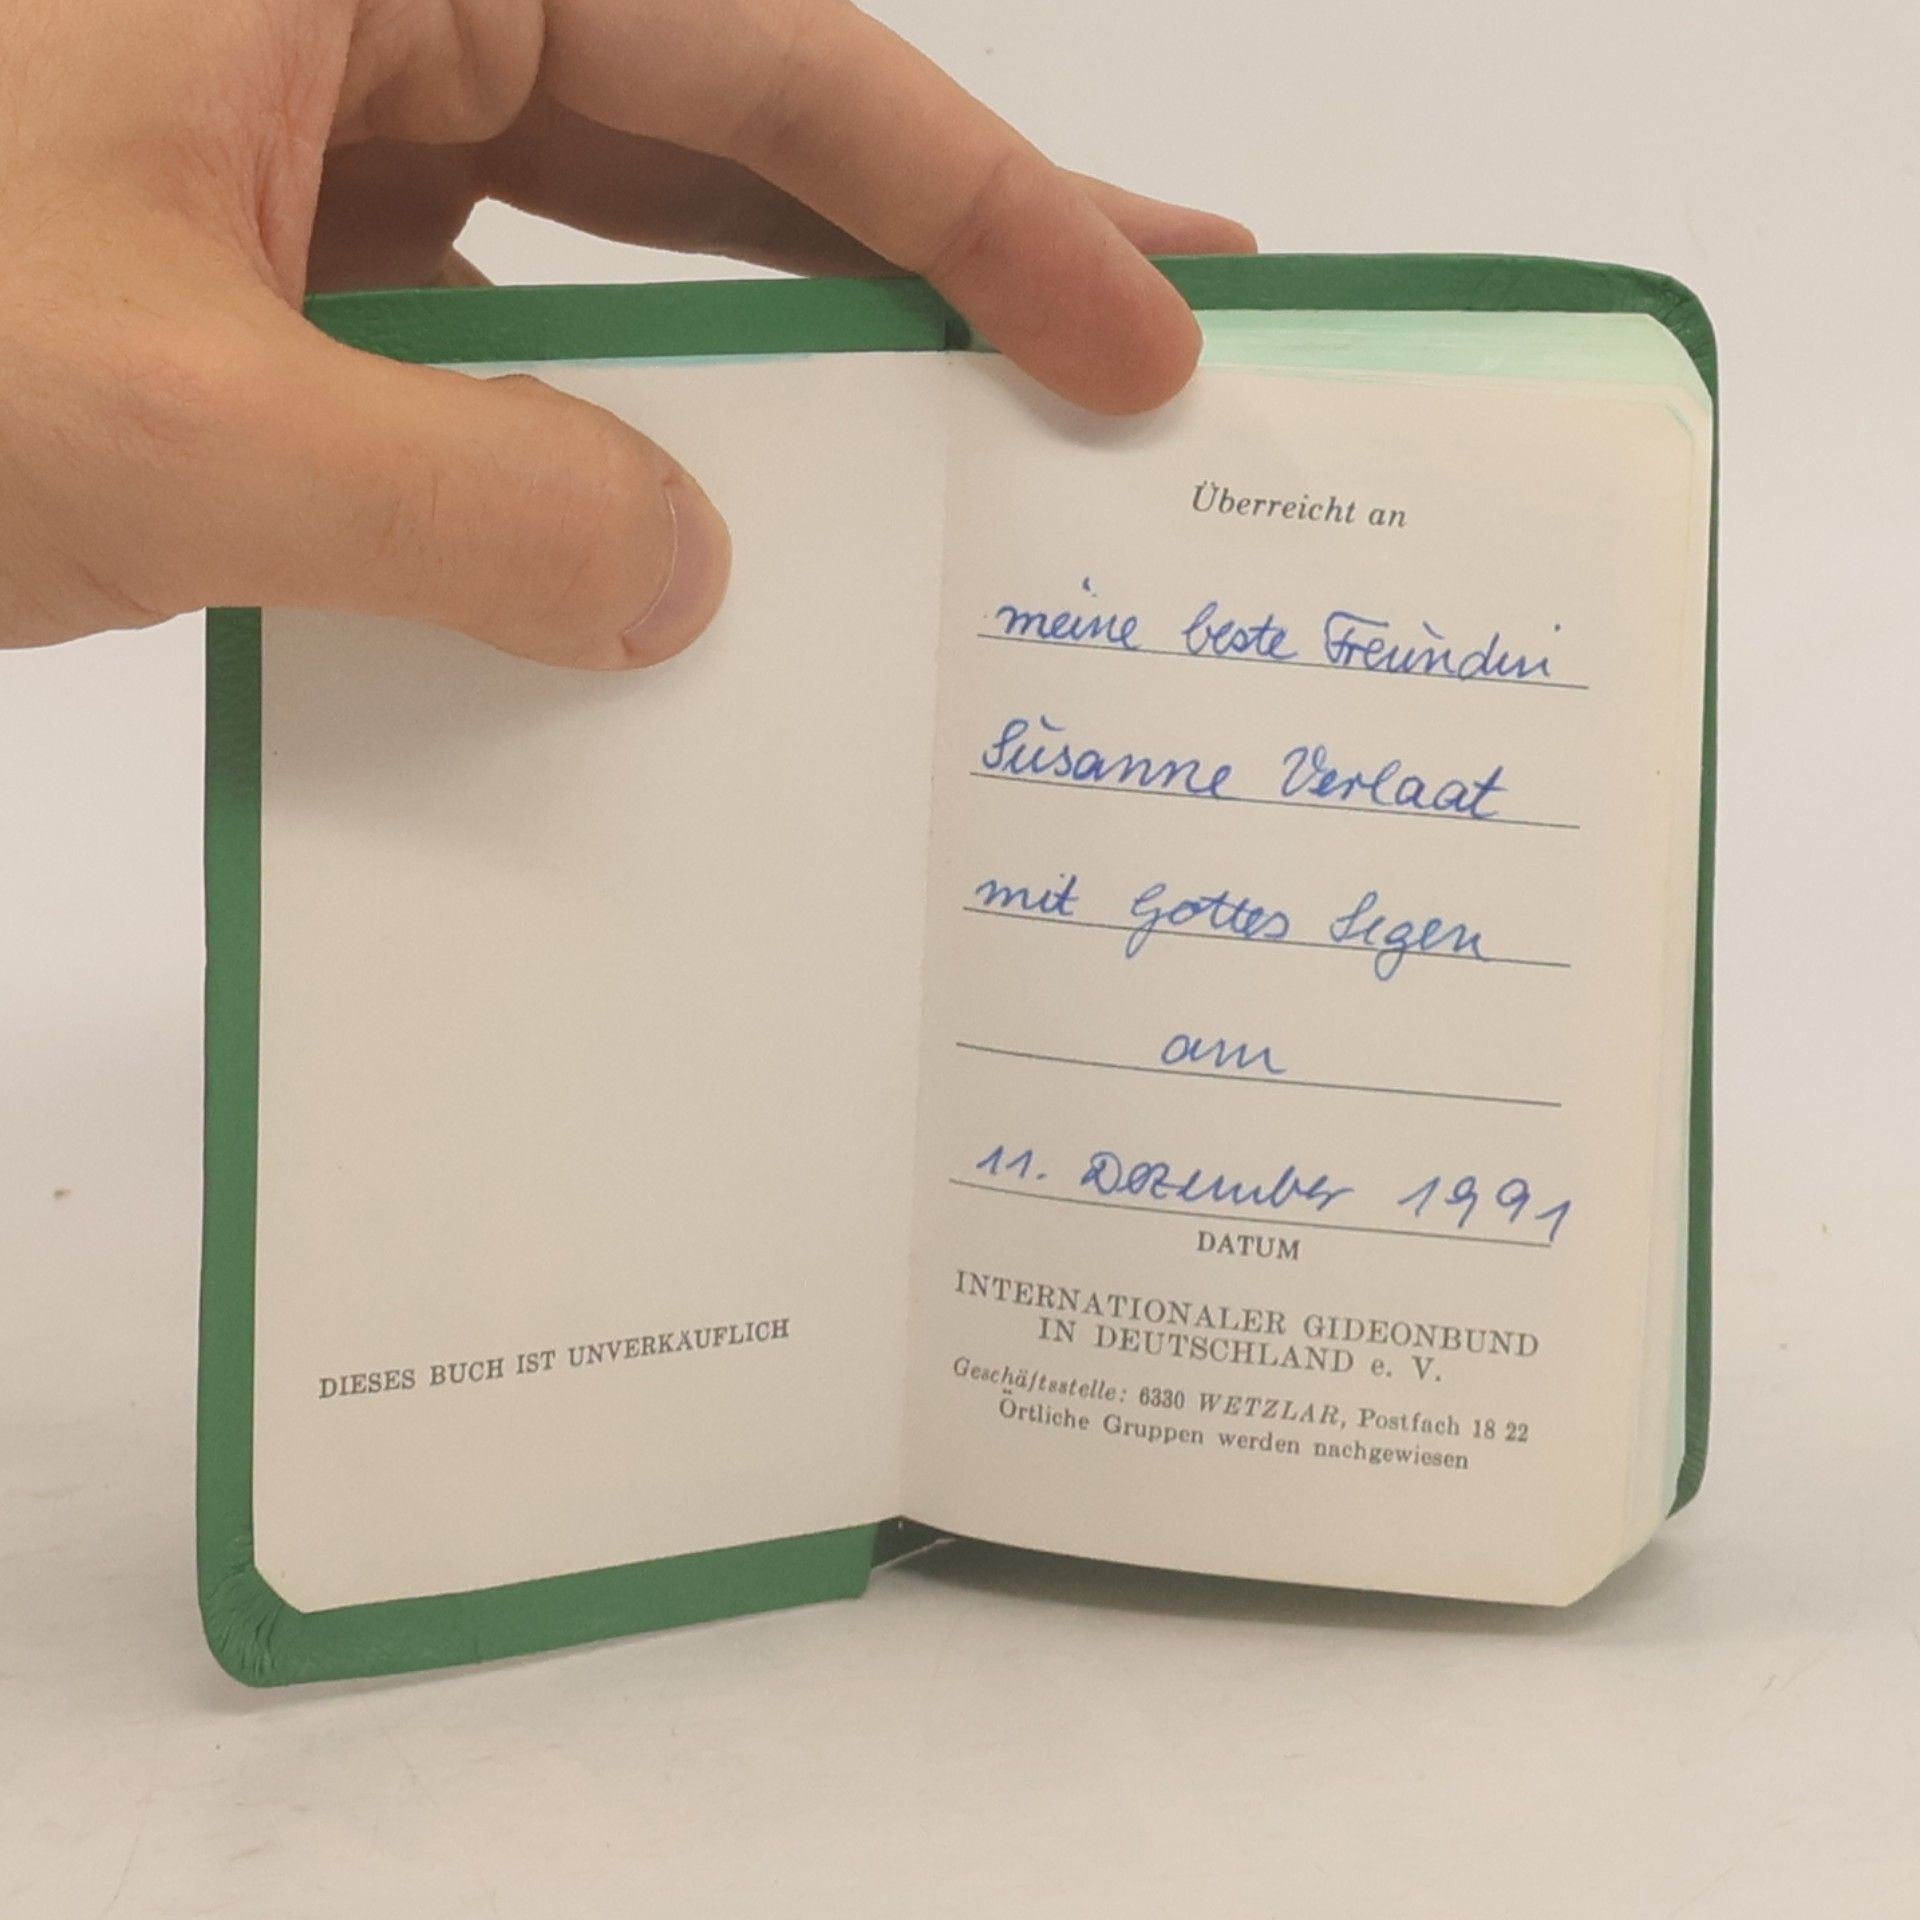 DIESES BUCH IST UNVERKÄUFLICH
Überreicht an
meine beste Freundin
Susanne Verlaat
mit Gottes Segen
am
11. Dezember 1991
DATUM
INTERNATIONALER GIDEONBUND
IN DEUTSCHLAND e. V.
Geschäftsstelle: 6330 WETZLAR, Postfach 18 22
Örtliche Gruppen werden nachgewiesen